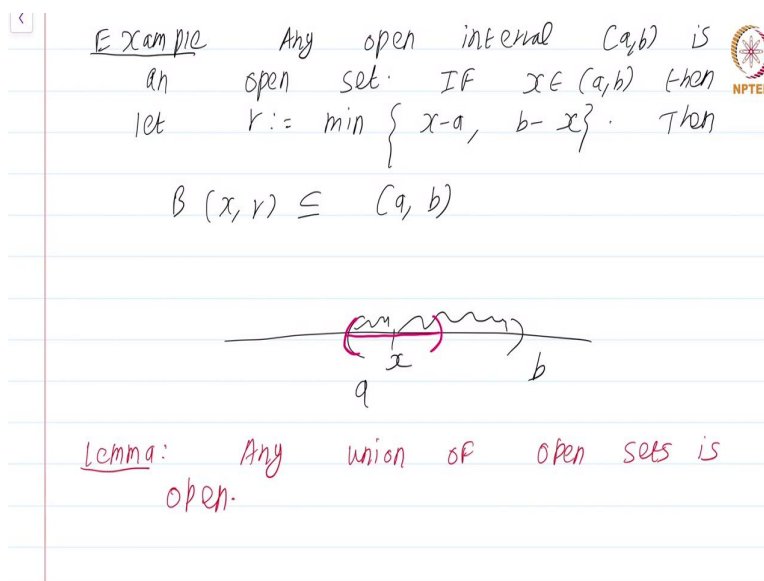 Example Any open interval (a,b) is
NPTEL
an open set. If x ∈ (a,b) then
let r := min { x-a, b-x }. Then
B (x, r) ⊆ (a, b)
x
a
b
Lemma: Any union of open sets is
open.